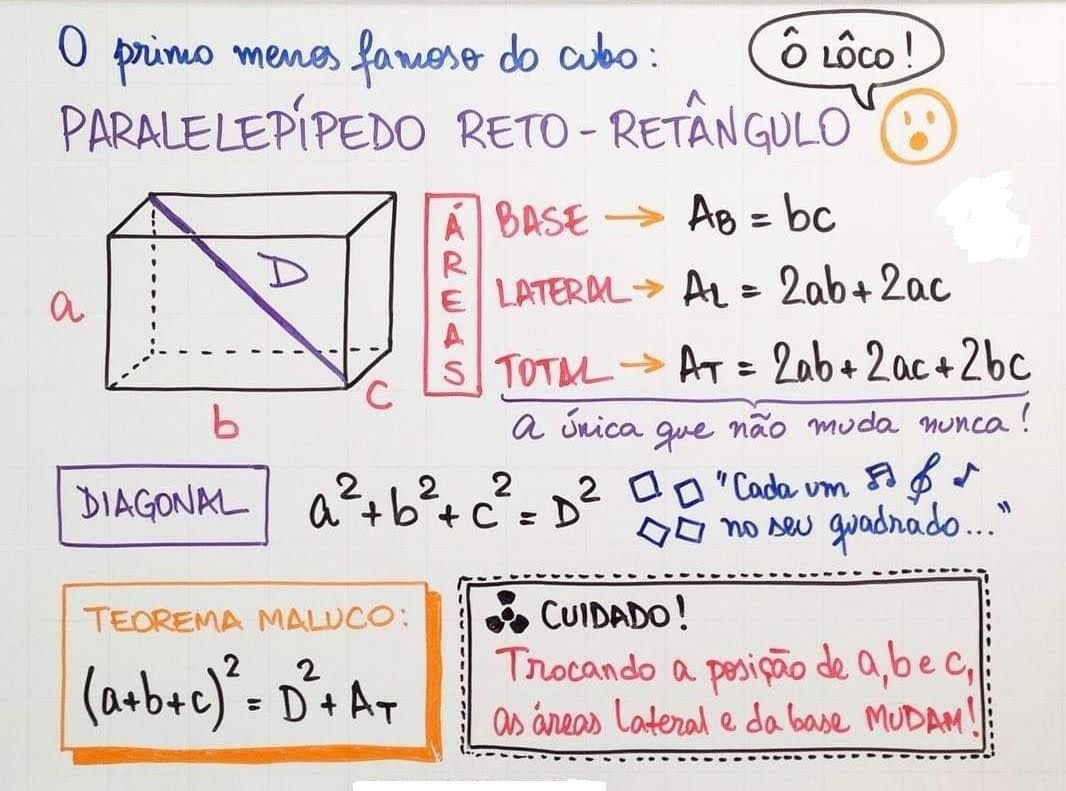 O primo menos famoso do cubo:
Ô LÔCO!
PARALELEPÍPEDO RETO-RETÂNGULO
a
b
c
D
ÁREAS
BASE → AB = bc
LATERAL → AL = 2ab + 2ac
TOTAL → AT = 2ab + 2ac + 2bc
a única que não muda nunca!
DIAGONAL
a² + b² + c² = D²
"Cada um
no seu quadrado..."
TEOREMA MALUCO:
(a+b+c)² = D² + AT
CUIDADO!
Trocando a posição de a, b e c,
as áreas lateral e da base MUDAM!